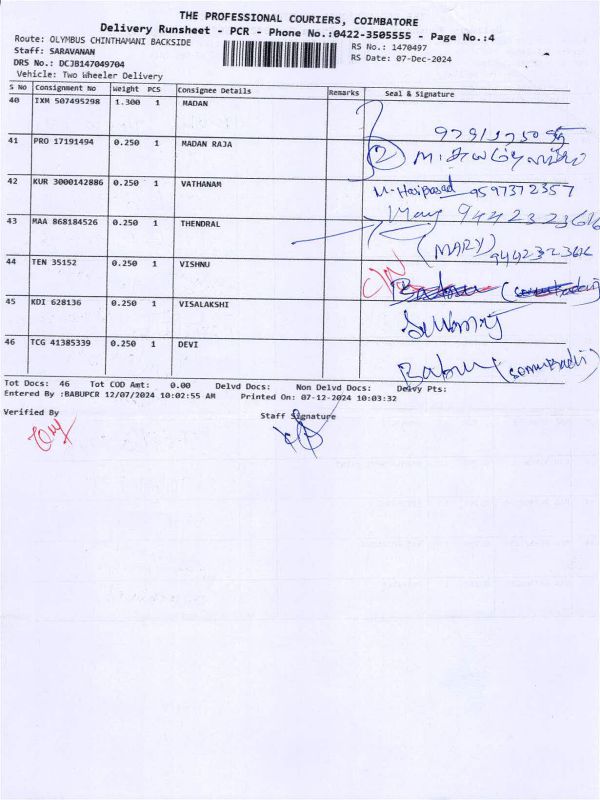 THE PROFESSIONAL COURIERS, COIMBATORE
Delivery Runsheet - PCR - Phone No.:0422-3505555 - Page No.:4
Route: OLYMBUS CHINTHAMANI BACKSIDE
RS No.: 1470497
Staff: SARAVANAN
RS Date: 07-Dec-2024
DRS No.: DCJB147049704
Vehicle: Two Wheeler Delivery
S No Consignment No Weight PCS Consignee Details Remarks Seal & Signature
40 IXM 507495298 1.300 1 MADAN
41 PRO 17191494 0.250 1 MADAN RAJA
2
42 KUR 3000142886 0.250 1 VATHANAM
M. Hariprasad 9597372357
43 MAA 868184526 0.250 1 THENDRAL
Mary 9442323616
(MARY) 9442323616
44 TEN 35152 0.250 1 VISHNU
C/N
45 KDI 628136 0.250 1 VISALAKSHI
46 TCG 41385339 0.250 1 DEVI
Babu
Tot Docs: 46 Tot COD Amt: 0.00 Delvd Docs: Non Delvd Docs: Delvy Pts:
Entered By :BABUPCR 12/07/2024 10:02:55 AM Printed On: 07-12-2024 10:03:32
Verified By
Staff Signature